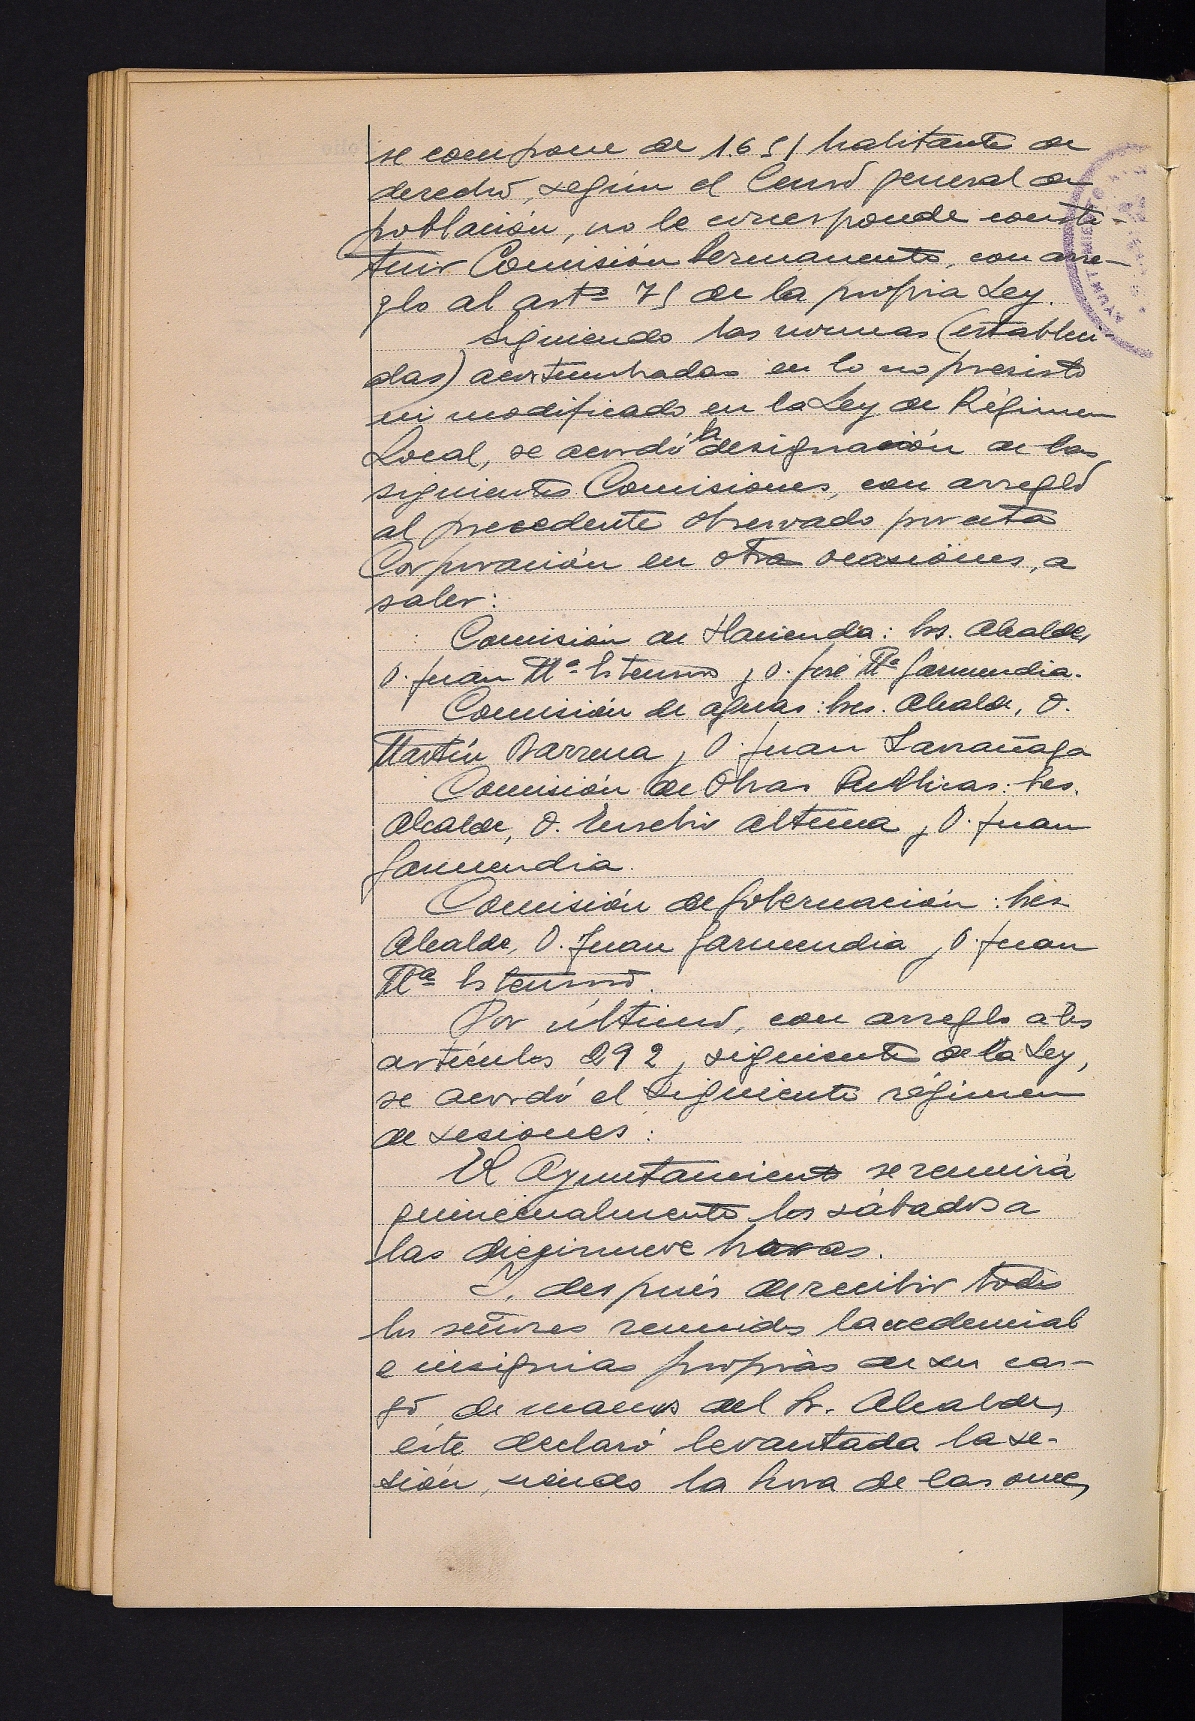 se compone de 1.651 habitantes de
derecho, según el Censo general de
población, no le corresponde consti-
tuir Comisión Permanente, con arre-
glo al artº 75 de la propia Ley.
Siguiendo las normas (estableci-
das) acostumbradas en lo no previsto
ni modificado en la Ley de Régimen
Local, se acordó la designación de las
siguientes Comisiones, con arreglo
al precedente observado por esta
Corporación en otras ocasiones, a
saber:
Comisión de Hacienda: Sres. Alcalde,
D. Juan Mª y D. José Mª Garmendia.
Comisión de aguas: Sres. Alcalde, D.
Martín Barrena y D. Juan Larrañaga
Comisión de Obras Publicas: Sres.
Alcalde, D. Eusebio Altuna y D. Juan
Garmendia.
Comisión de Gobernación: Sres
Alcalde, D. Juan Garmendia y D. Juan
Mª
Por último, con arreglo a los
artículos 292 y siguientes de la Ley,
se acordó el siguiente régimen
de sesiones:
El Ayuntamiento se reunirá
quincenalmente los sábados a
las diecinueve horas.
Y, después de recibir todos
los señores reunidos la credencial
e insignias propias de su car-
go, de manos del Sr. Alcalde,
éste declaró levantada la se-
sión, siendo la hora de las once,
AYUNTAMIENTO